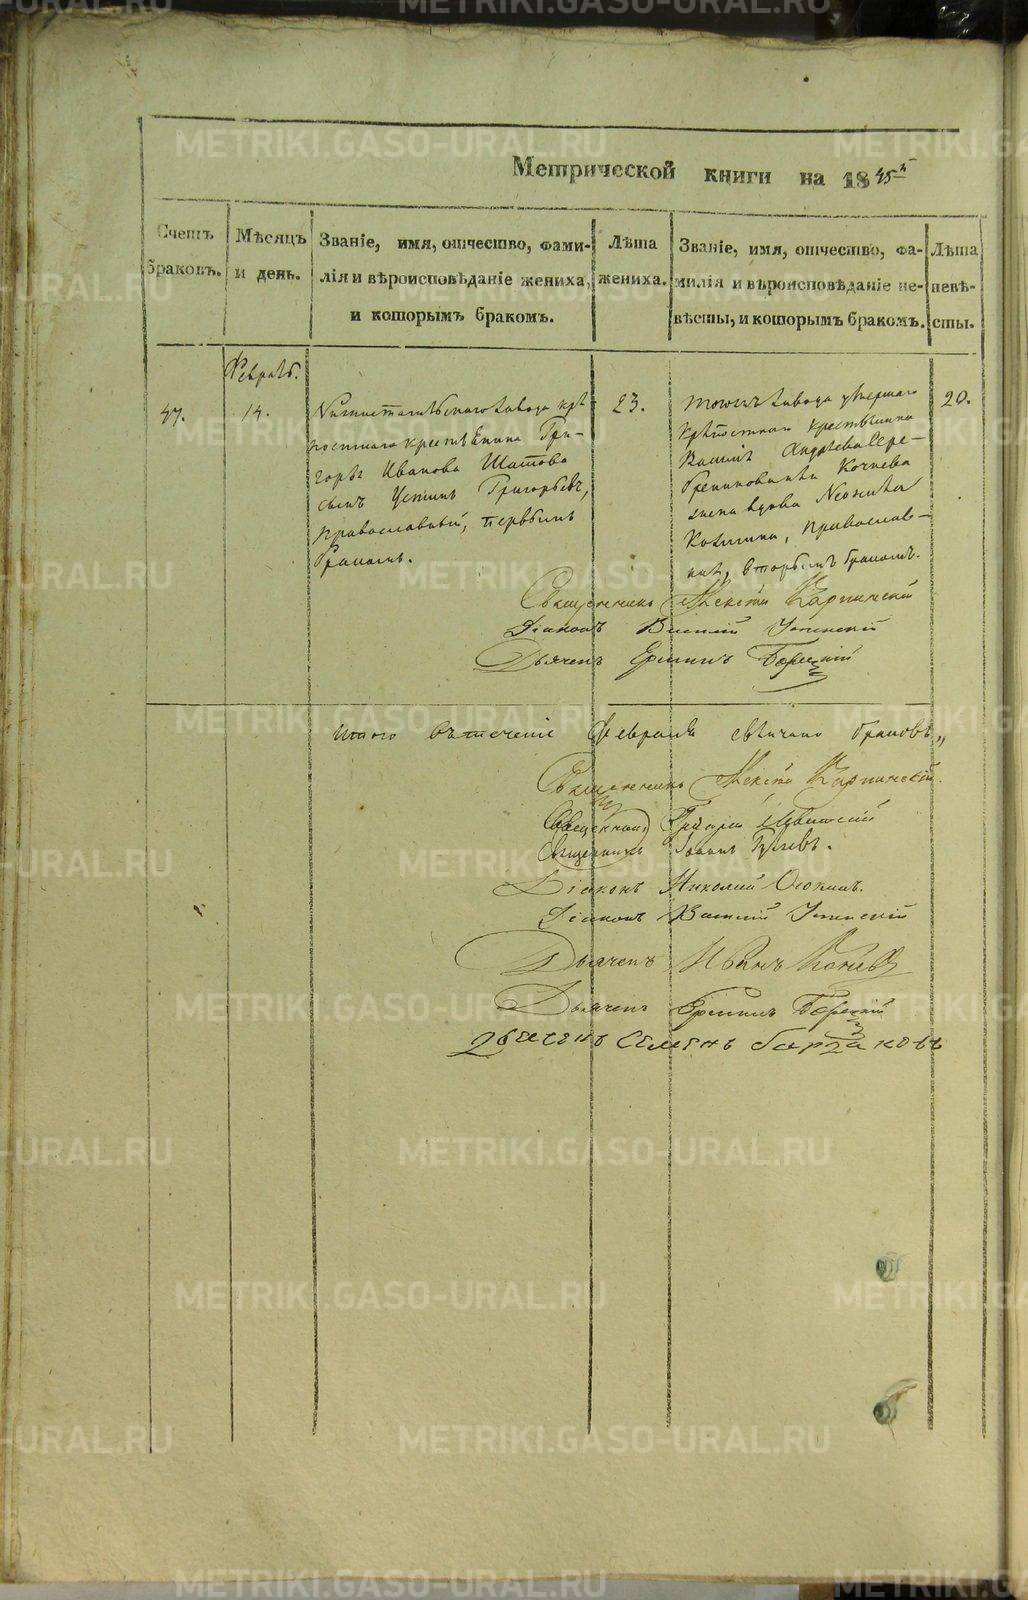 METRIKI.GASO-URAL.RU
Метрической книги на 1845й
Счетъ браковъ.
Мѣсяцъ и день.
Званіе, имя, отчество, фамилія и вѣроисповѣданіе жениха, и которымъ бракомъ.
Лѣта жениха.
Званіе, имя, отчество, фамилія и вѣроисповѣданіе невѣсты, и которымъ бракомъ.
Лѣта невѣсты.
Февраль.
47.
14.
Нижнетагильскаго завода крѣ
постнаго крестьянина Гри-
горья Иванова Шатова
сынъ Устинъ Григорьевъ,
православный, первымъ
бракомъ.
23.
тогожъ завода умершаго
крѣпостнаго крестьянина
Андреева Сере-
бренникова
жена вдова
православ-
ная, вторымъ бракомъ.
20.
Священникъ Алексѣй Карпинскій
Діаконъ Василій Успенскій
Дьячекъ Ермилъ
Итого въ теченіе Февраля свѣнчано браковъ „
Священникъ Алексѣй Карпинскій.
Священникъ Григорій
Священникъ Іоаннъ
Діаконъ Николай Осокинъ.
Діаконъ Василій Успенскій
Дьячекъ Иванъ
Дьячекъ Ермилъ
Семенъ